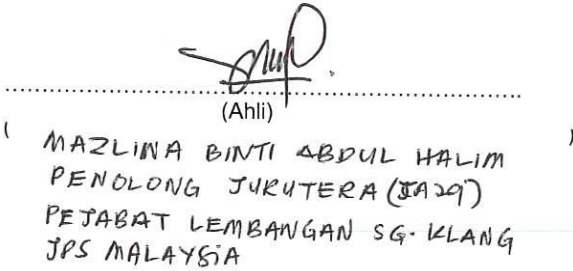 (Ahli)
( MAZLINA BINTI ABDUL HALIM )
PENOLONG JURUTERA (JA29)
PEJABAT LEMBANGAN SG. KLANG
JPS MALAYSiA